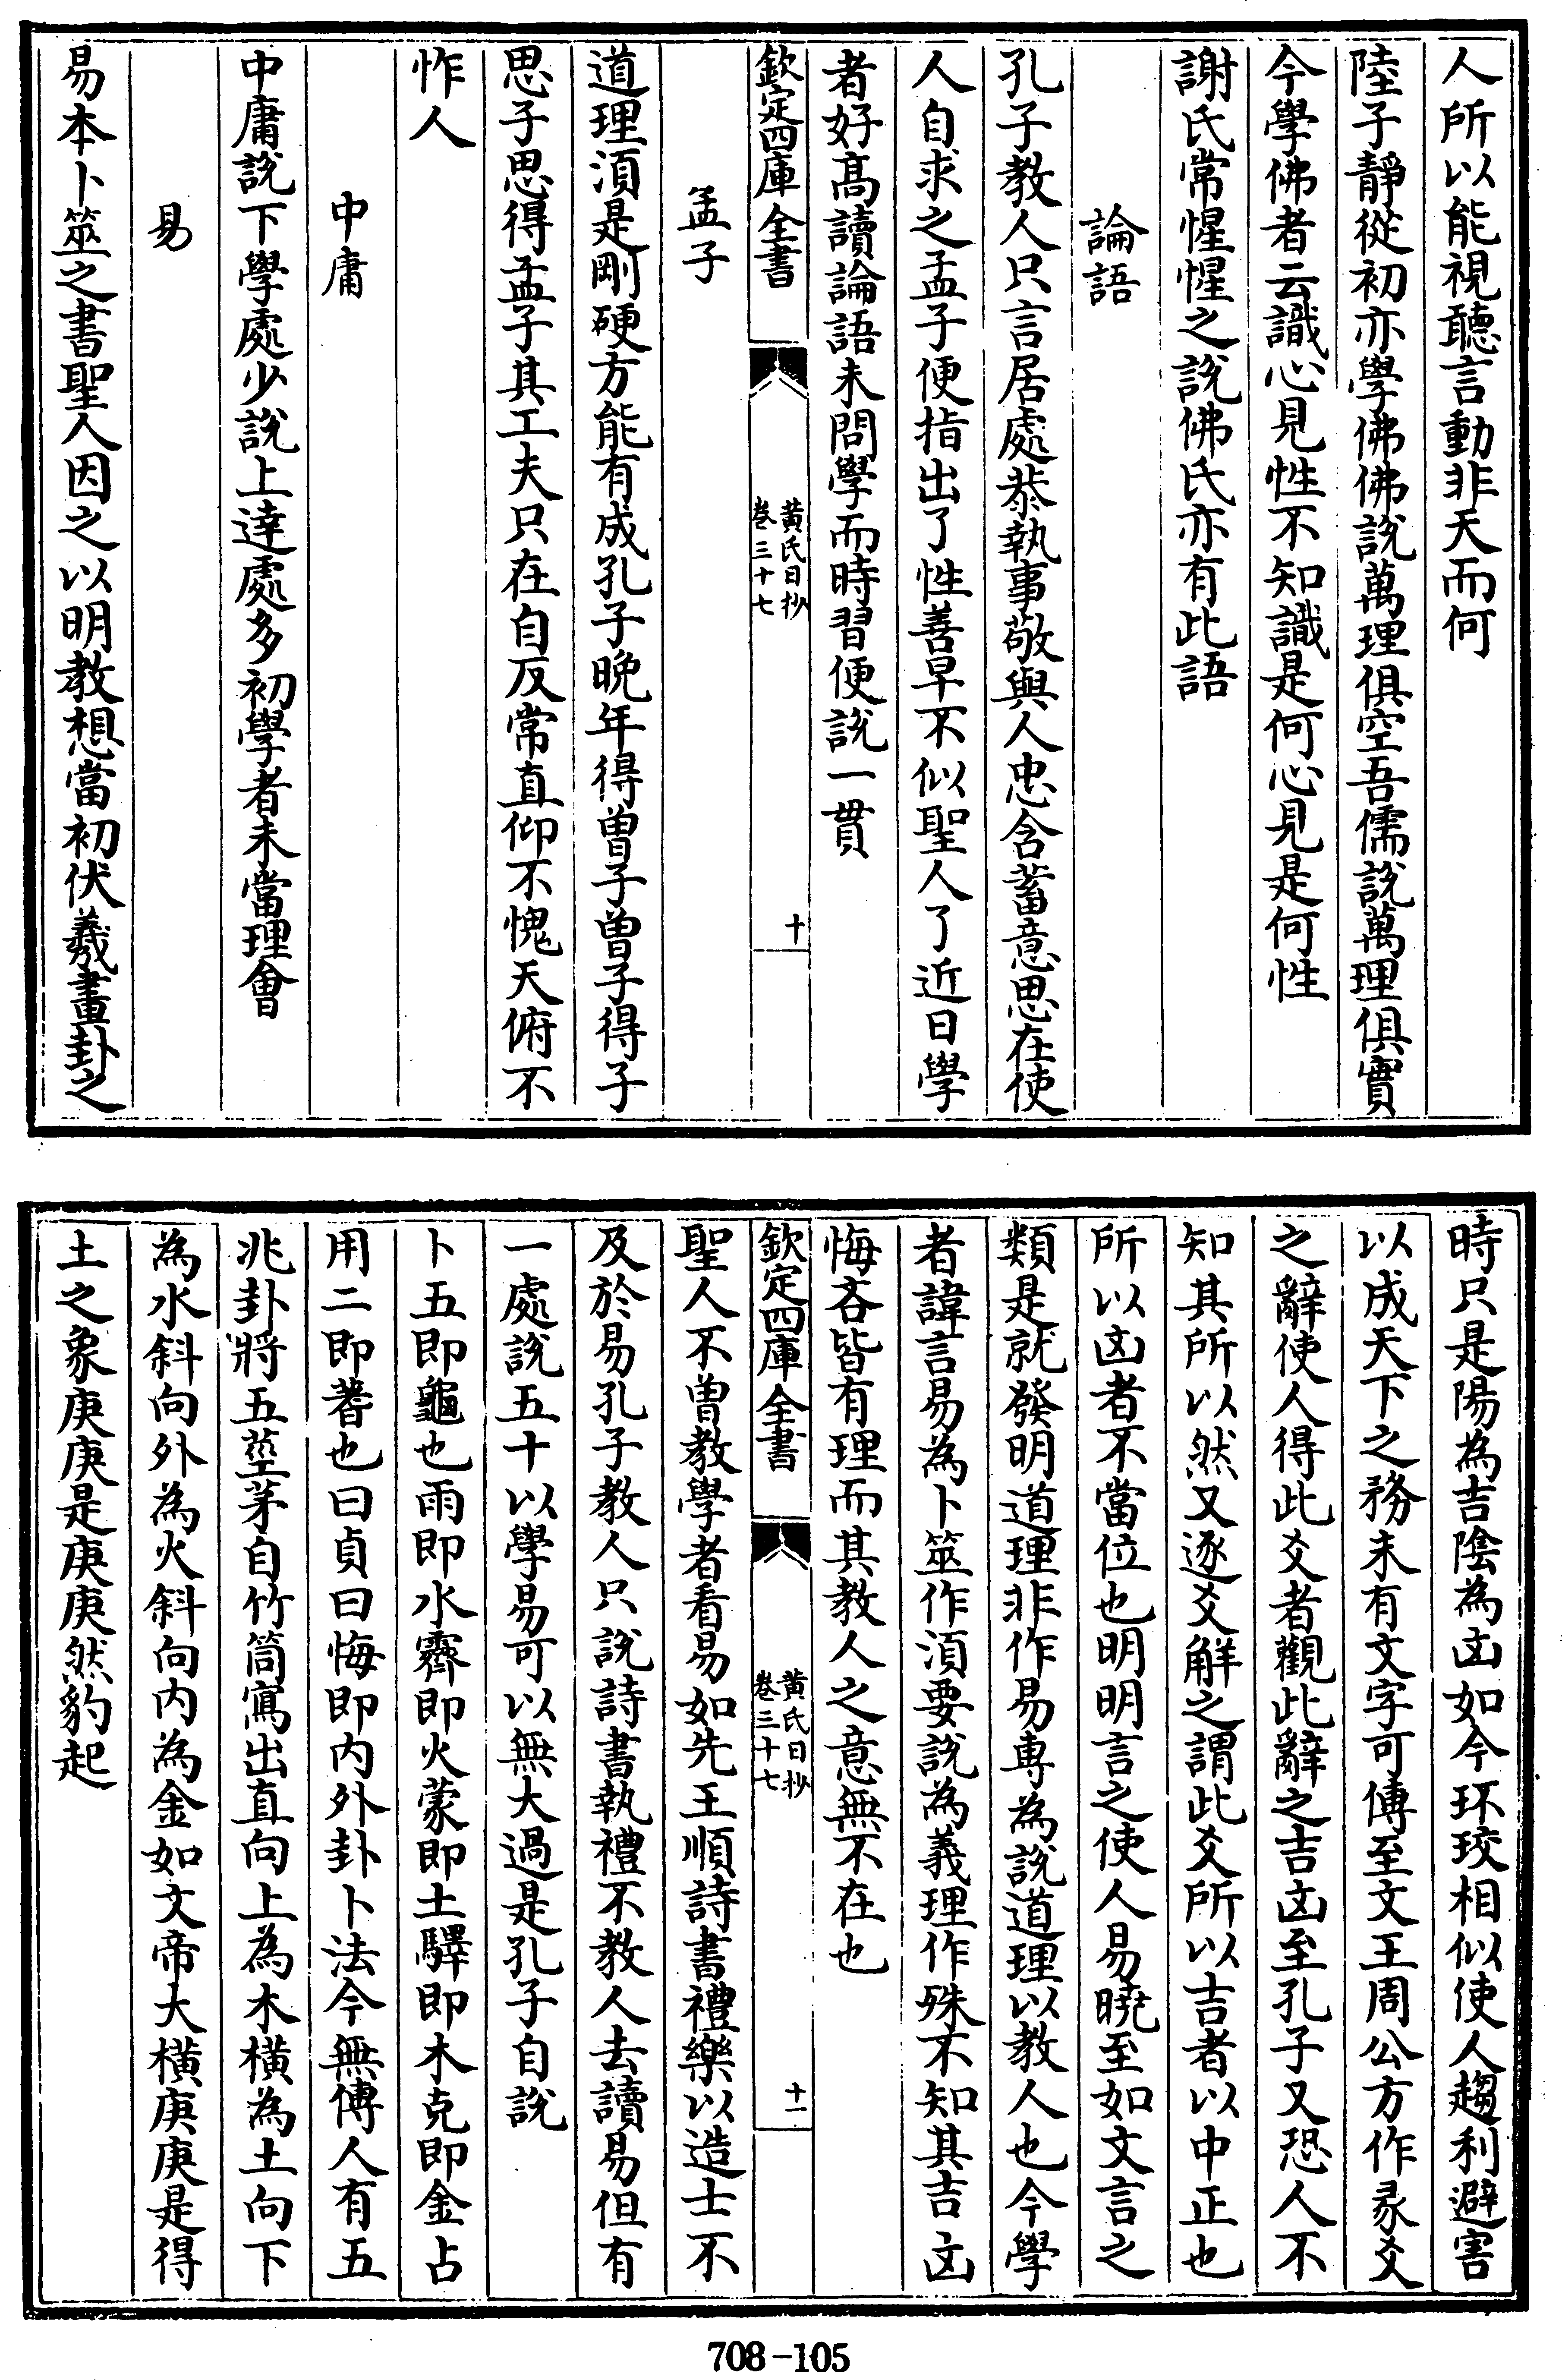 人所以能視聽言動非天而何
陸子靜從初亦學佛佛說萬理俱空吾儒說萬理俱實
今學佛者云識心見性不知識是何心見是何性
謝氏常惺惺之說佛氏亦有此語
論語
孔子教人只言居處恭執事敬與人忠含蓄意思在使
人自求之孟子便指出了性善早不似聖人了近日學
者好髙讀論語未問學而時習便說一貫
欽定四庫全書
黃氏日抄
卷三十七
十
孟子
道理湏是剛硬方能有成孔子晩年得曽子曽子得子
思子思得孟子其工夫只在自反常直仰不愧天俯不
怍人
中庸
中庸説下學處少説上達處多初學者未當理會
易
易本卜筮之書聖人因之以明教想當初伏羲畫卦之
時只是陽為吉隂為凶如今环珓相似使人趨利避害
以成天下之務未有文字可傳至文王周公方作彖爻
之辭使人得此爻者觀此辭之吉凶至孔子又恐人不
知其所以然又逐爻解之謂此爻所以吉者以中正也
所以凶者不當位也明明言之使人易曉至如文言之
類是就發明道理非作易専為説道理以教人也今學
者諱言易為卜筮作湏要説為義理作殊不知其吉凶
悔吝皆有理而其教人之意無不在也
欽定四庫全書
黃氏日抄
卷三十七
十一
聖人不曽教學者看易如先王順詩書禮樂以造士不
及於易孔子教人只說詩書執禮不教人去讀易但有
一處說五十以學易可以無大過是孔子自說
卜五即龜也雨即水霽即火蒙即土驛即木克即金占
用二即蓍也曰貞曰悔即内外卦卜法今無傳人有五
兆卦將五莖茅自竹筒寫出直向上為木橫為土向下
為水斜向外為火斜向内為金如文帝大橫庚庚是得
土之象庚庚是庚庚然豹起
708-105